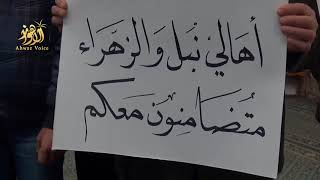 الأهواز
Ahwaz Voice
أهالي نبل والزهراء
متضامنون معكم